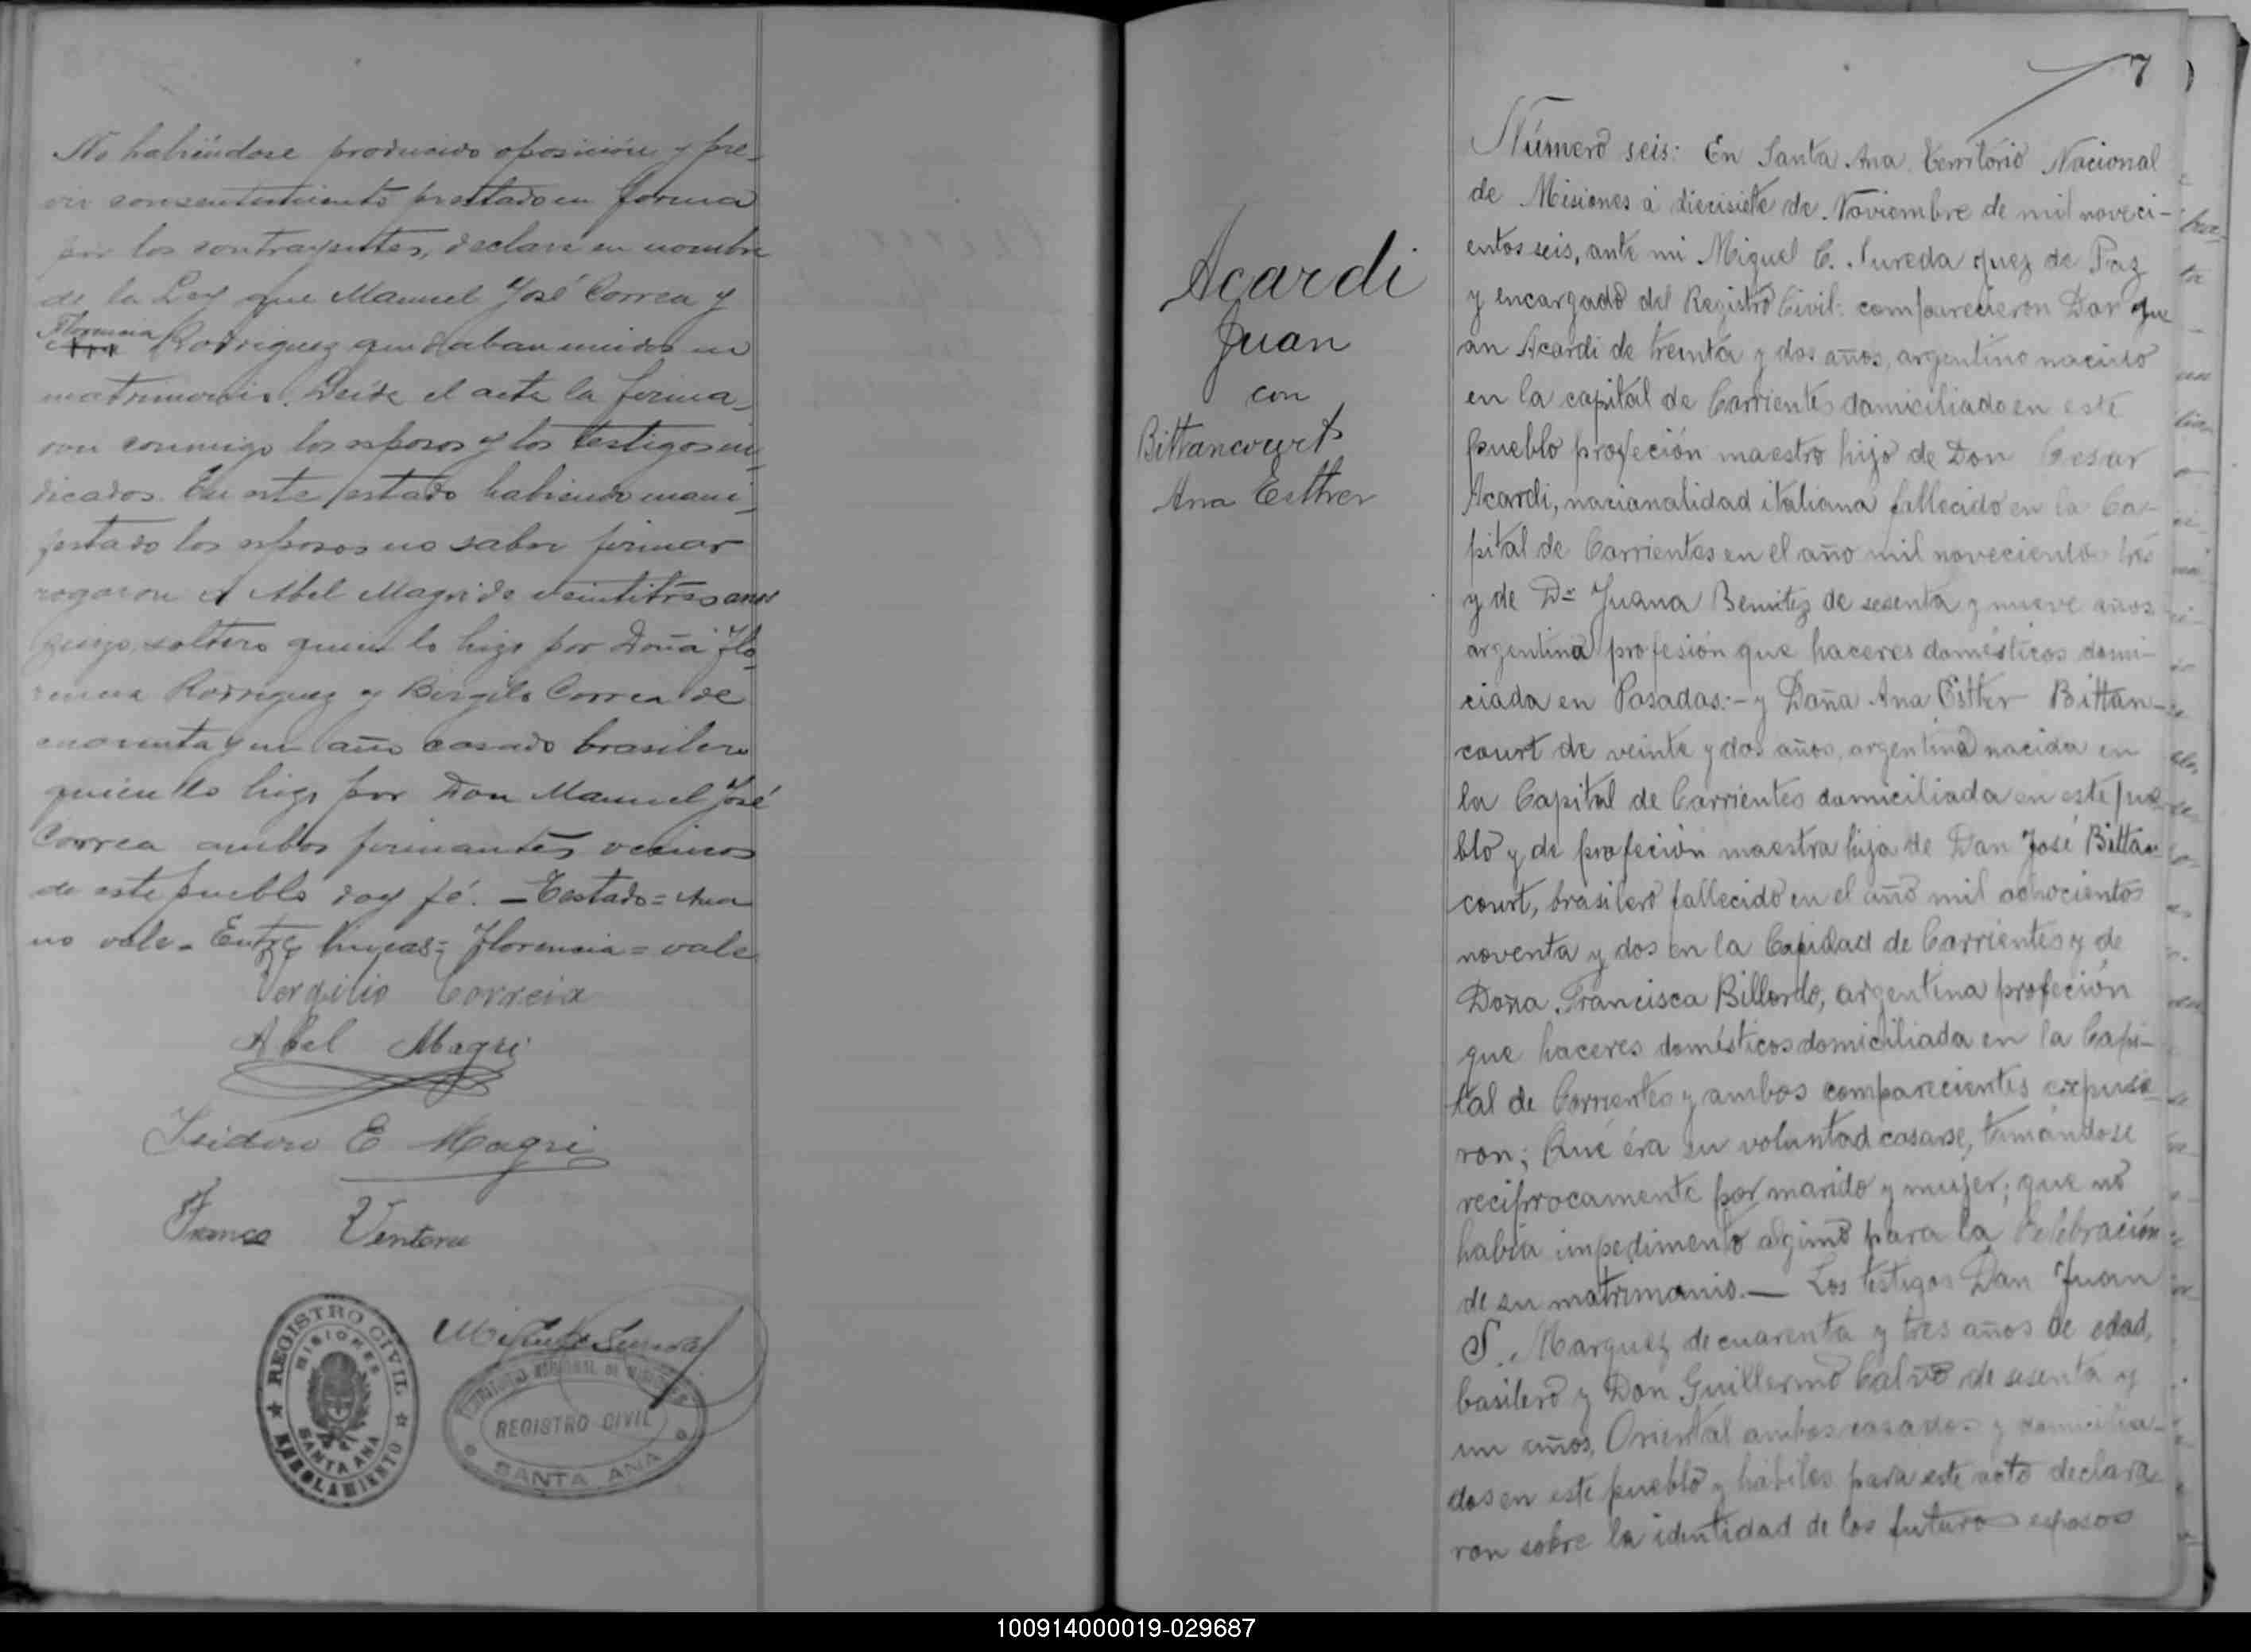 No habiéndose producido oposición y pre-
vio consentimiento prestado en forma
por los contrayentes, declaré en nombre
de la Ley que Manuel José Correa y
Florencia
Rodriguez quedaban unidos en
matrimonio. Leida el acta la firma-
ron conmigo los esposos y los testigos in-
dicados. En este estado habiendo mani-
festado los esposos no saber firmar
rogaron a Abel Magri de veintitres años
soltero quien lo hizo por Doña Flo-
rencia Rodriguez y Birgilo Correa de
cuarenta y un año casado brasilero
quien lo hizo por Don Manuel José
Correa ambos firmantes vecinos
de este pueblo doy fé. — Testado = Ana
no vale. Entre lineas = Florencia = vale
Vergilio Correia
Abel Magri
Isidoro E Magri
Franco Ventura
REGISTRO CIVIL
MISIONES
SANTA ANA
ENROLAMIENTO
TERRITORIO NACIONAL DE MISIONES
REGISTRO CIVIL
SANTA ANA
Acardi
Juan
con
Bittancourt
Ana Esther
7
Número seis: En Santa Ana Território Nacional
de Misiones á diecisiete de Noviembre de mil noveci-
entos seis, ante mi Miguel C. Sureda Juez de Paz
y encargado del Registro Civil: comparecieron Don Ju
an Acardi de treinta y dos años, argentino nacido
en la capital de Corrientes domiciliado en este
pueblo profeción maestro hijo de Don Cesar
Acardi, nacionalidad italiana fallecido en la Ca-
pital de Corrientes en el año mil novecientos tres
y de Da Juana Benitez de sesenta y nueve años
argentina profesión que haceres domésticos domi-
ciada en Posadas:- y Doña Ana Esther Bittan-
court de veinte y dos años, argentina nacida en
la Capital de Corrientes domiciliada en este pue-
blo y de profeción maestra hija de Don José Bittan-
court, brasilero fallecido en el año mil ochocientos
noventa y dos en la Capidad de Corrientes y de
Doña Francisca Billordo, argentina profeción
que haceres domésticos domiciliada en la Capi-
tal de Corrientes y ambos comparecientes expusie-
ron; Qué éra su voluntad casarse, tomándose
reciprocamente por marido y mujer; que no
habia impedimento algimo para la celebración
de su matrimonio.— Los testigos Don Juan
S. Marquez de cuarenta y tres años de edad,
basilero y Don Guillermo Calvo de sesenta y
un años, Oriental ambos casados y domicilia-
dos en este pueblo y hábiles para este acto declara-
ron sobre la identidad de los futuros esposos
100914000019-029687